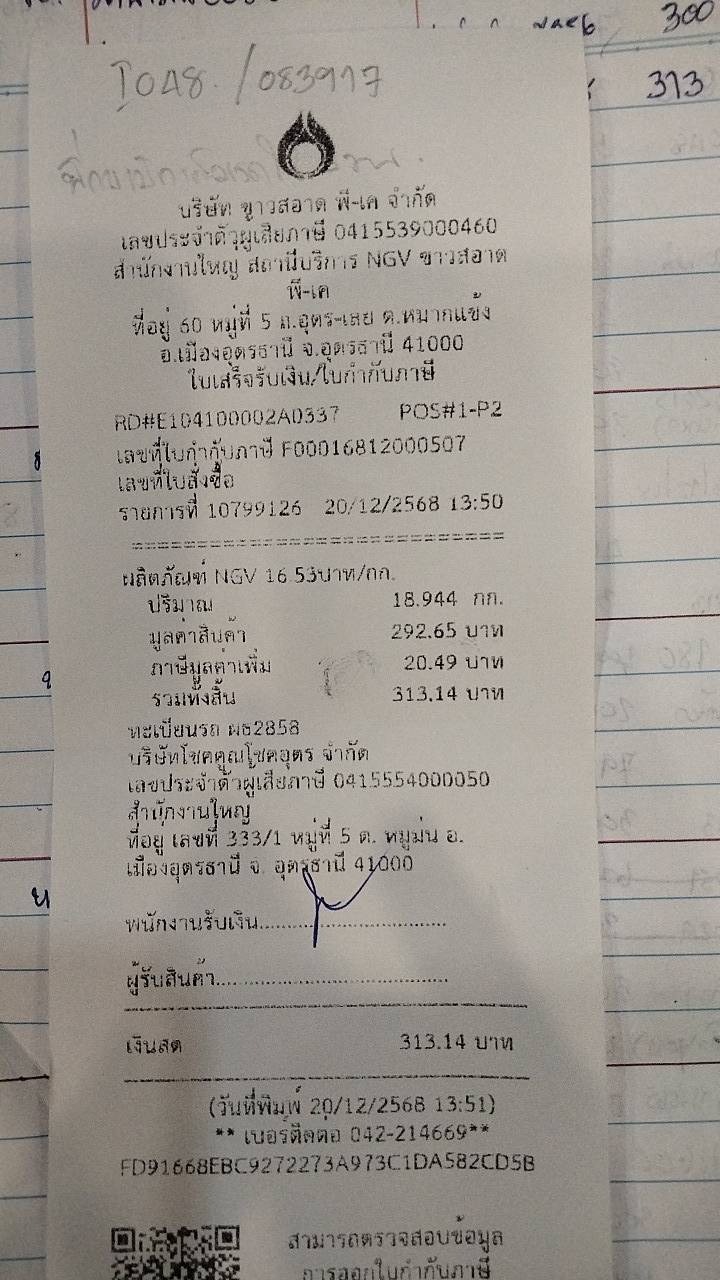 300
313
I048. /083917
บริษัท ขาวสอาด พี-เค จำกัด
เลขประจำตัวผู้เสียภาษี 0415539000460
สำนักงานใหญ่ สถานีบริการ NGV ขาวสอาด
พี-เค
ที่อยู่ 60 หมู่ที่ 5 ถ.อุดร-เลย ต.หมากแข้ง
อ.เมืองอุดรธานี จ.อุดรธานี 41000
ใบเสร็จรับเงิน/ใบกำกับภาษี
RD#E104100002A0337 POS#1-P2
เลขที่ใบกำกับภาษี F00016812000507
เลขที่ใบสั่งซื้อ
รายการที่ 10799126 20/12/2568 13:50
ผลิตภัณฑ์ NGV 16.53บาท/กก.
ปริมาณ 18.944 กก.
มูลค่าสินค้า 292.65 บาท
ภาษีมูลค่าเพิ่ม 20.49 บาท
รวมทั้งสิ้น 313.14 บาท
ทะเบียนรถ ผธ2858
บริษัทโชคคูณโชคอุดร จำกัด
เลขประจำตัวผู้เสียภาษี 0415554000050
สำนักงานใหญ่
ที่อยู่ เลขที่ 333/1 หมู่ที่ 5 ต. หมูม่น อ.
เมืองอุดรธานี จ. อุดรธานี 41000
พนักงานรับเงิน..............................
ผู้รับสินค้า......................................
เงินสด 313.14 บาท
(วันที่พิมพ์ 20/12/2568 13:51)
** เบอร์ติดต่อ 042-214669**
FD91668EBC9272273A973C1DA582CD5B
สามารถตรวจสอบข้อมูล
การออกใบกำกับภาษี